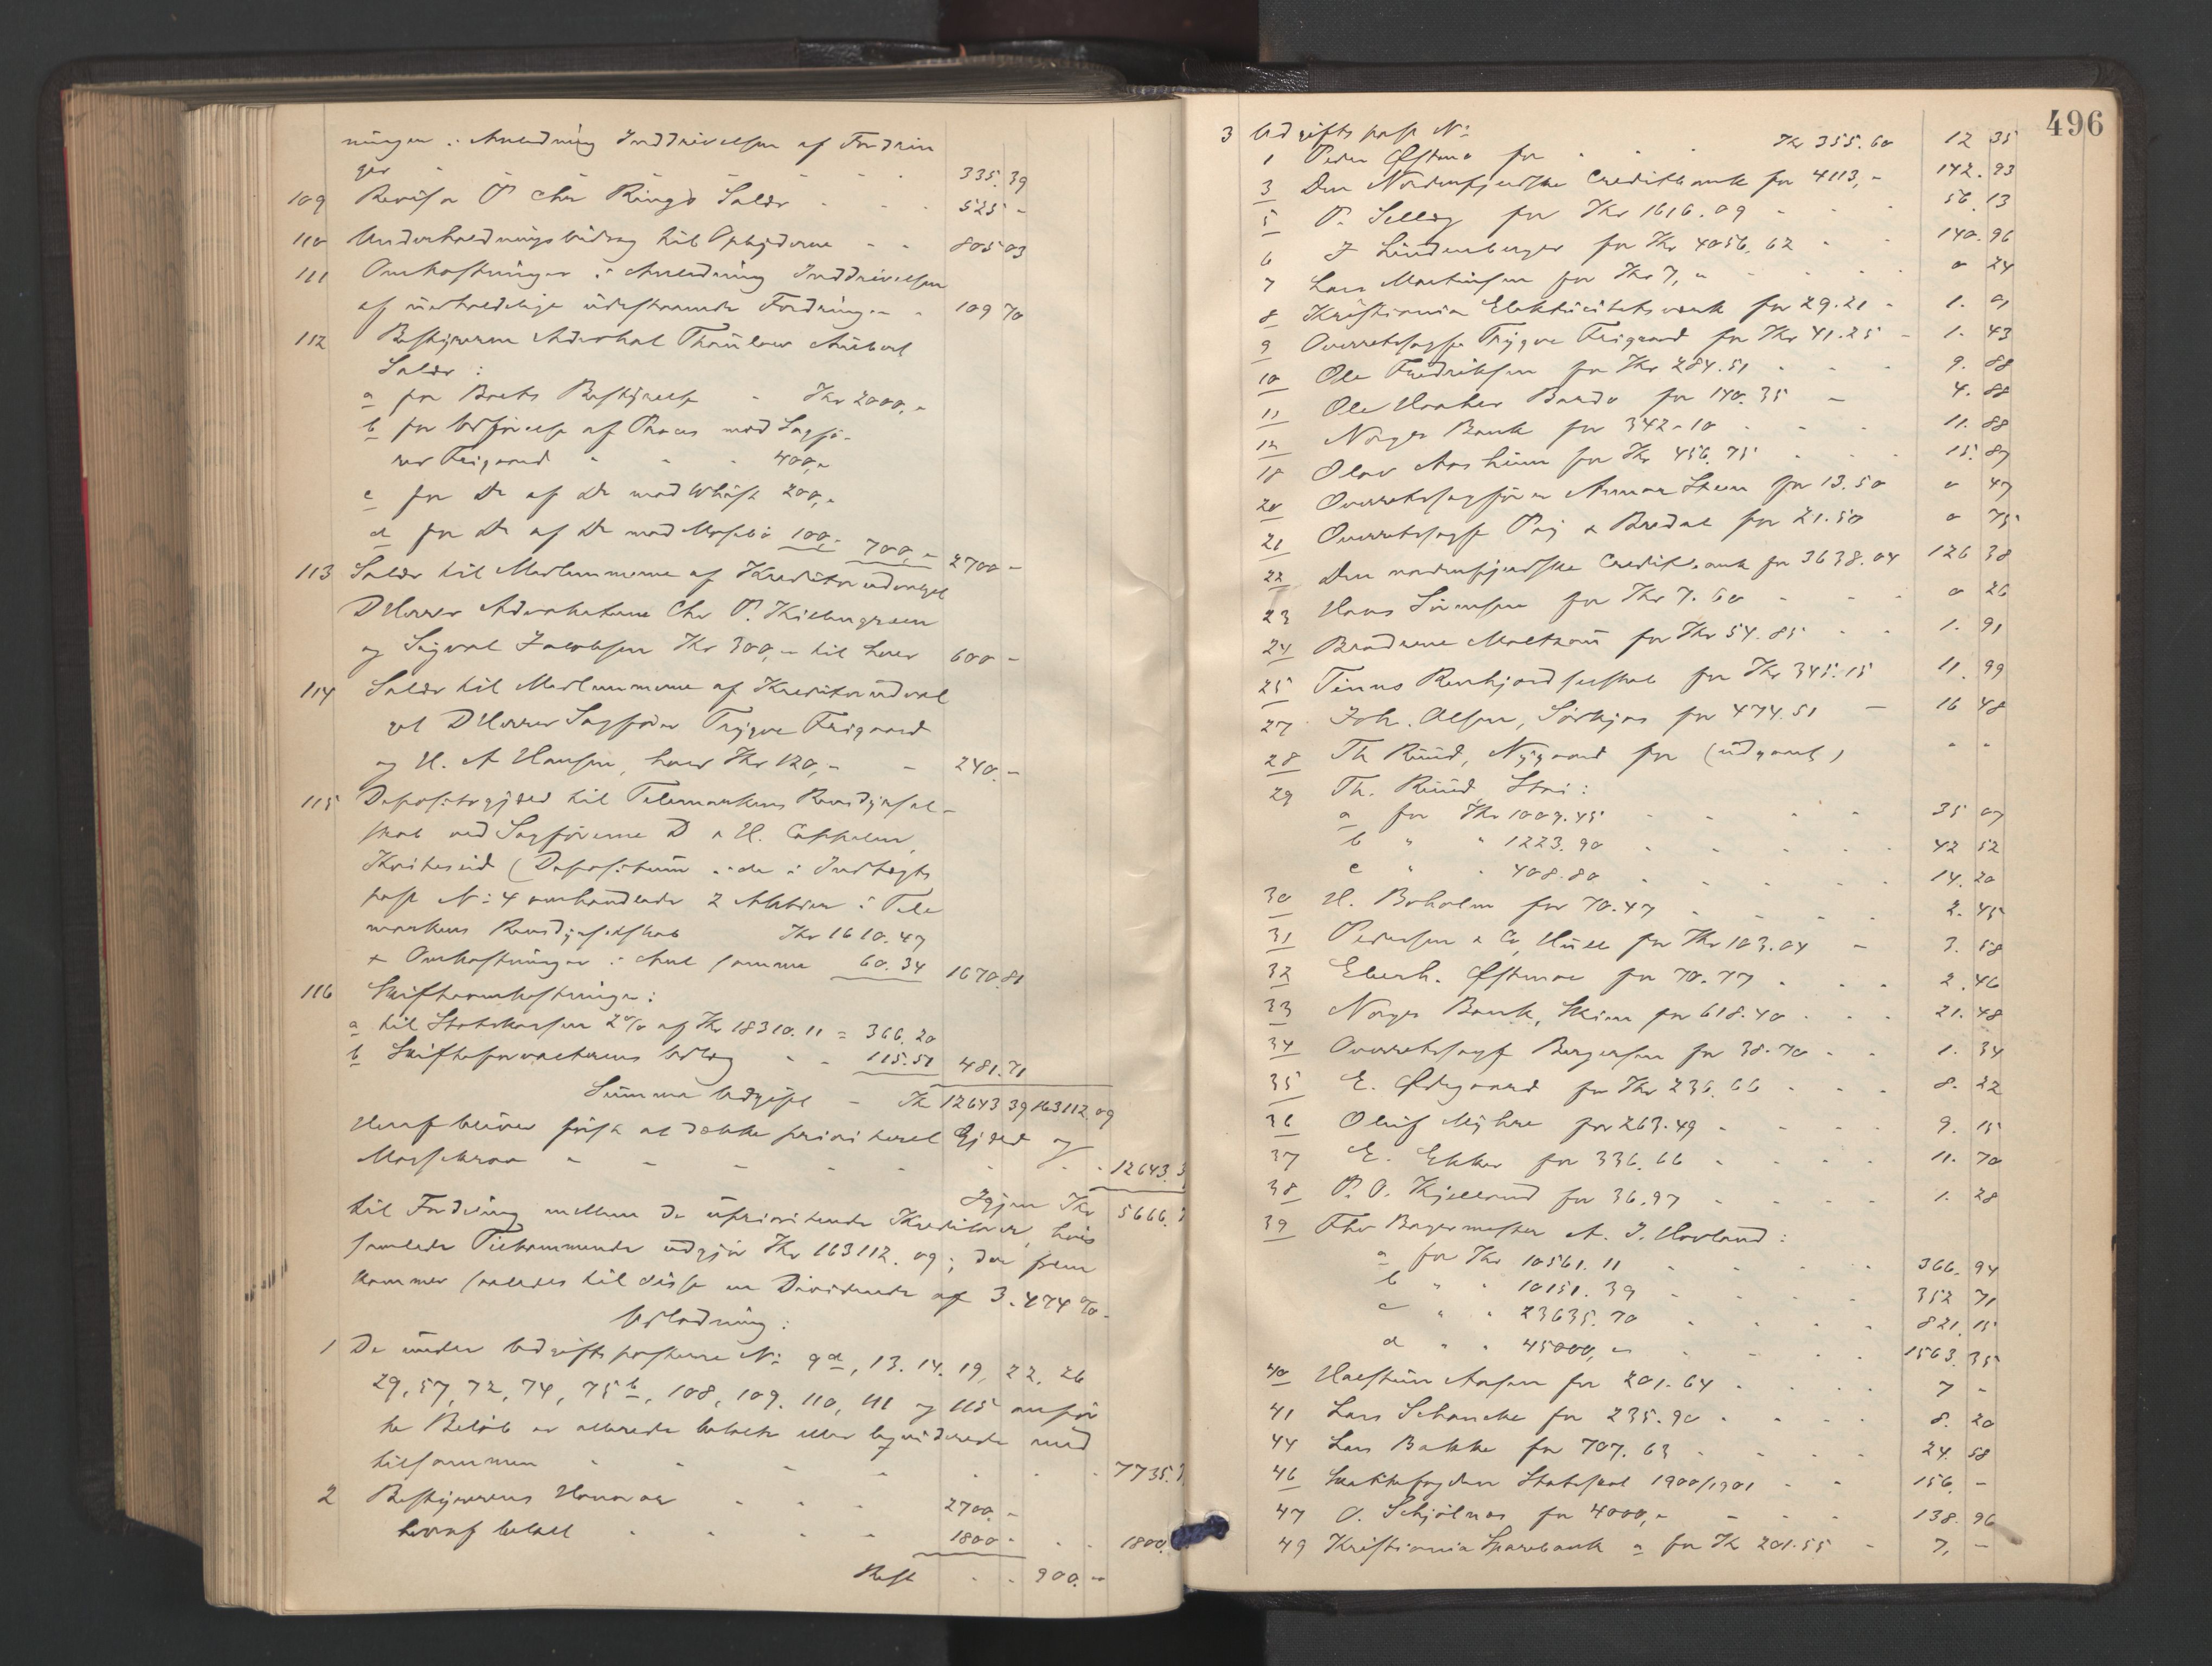 ningen i Anledning Inddrivelsen af Fordrin
ger - - - - - 335.39
109 Revisor P Chr Ringdi Salær - - 525 -
110 Underholdningsbidrag til Opbyderne - - 805 03
111 Omkostninger i Anledning Inddrivelsen
af uerholdelige udestaaende Fordringer - 109 70
112 Bestyreren Advokat Thaulow
Salær:
a for Boets Bestyrelse - Kr 2000,-
b for Udførelse af Proces mod Sagfø-
rer Feigaard - - - 400,-
c for Do af Do mod 200,-
d for Do af Do mod 100,- 700,- 2700 -
113 Salær til Medlemmerne af Kreditorudvalget
DHerrer Advokaterne Chr P. Killengreen
og Sigval Jacobsen Kr 300,- til hver 600 -
114 Salær til Medlemmerne af Kreditorudval
get DHerrer Sagfører Trygve Feigaard
og H. A Hansen, hver Kr 120,- - 240.-
115 Depositogjæld til Telemarkens Rensdyrsel-
skab ved Sagførerne D & H. Cappelen,
Kviteseid (Depositum i de i Indtægts
post No 4 omhandlede 2 Aktier i Tele
markens Rensdyrselskab Kr 1610.47
+ Omkostninger i Anl samme 60.34 1670.81
116 Skifteomkostninger:
a til Statskassen 2% af Kr 18310.11 = 366.20
b Skifteforvalterens Udlæg - - 115.51 481.71
Summa Udgift - Kr 12643 39 163112.09
Heraf bliver først at dække prioriteret Gjæld og
Massekrav - - - - - - 12643.3
Igjen Kr 5666.7
til Fordeling mellem de uprioriterede Kreditorer, hvis
samlede Tilkommende udgjør Kr 163112.09; der frem
kommer saaledes til disse en Dividende af 3.474%.
Udlodning:
1 De under Udgiftsposterne No 9d, 13. 14. 19, 22. 26
29, 57, 72, 74, 75b, 108, 109. 110, 111 og 115 anfør
te Beløb er allerede betalte eller liqviderede med
tilsammen - - - - - - 7735.7
2 Bestyrerens Honorar - - - 2700.-
heraf betalt - - - - 1800 - - - 1800.
Rest - - 900.-
496
3 Udgifts post No
1 Peder Østmo for - - - Kr 355.60 12 35
3 Den Nordenfjeldske Creditbank for 4113,- 142.93
5 P. Selleg for Kr 1616.09 - - - 56.13
6 J Lindenberger for Kr 4056.62 - - 140.96
7 Lars Martinsen for Kr 7,- - - - - 0 24
8 Kristiania Elektricitetsverk for 29.21 - 1. 01
9 Overretssagfø Trygve Feigaard for Kr 41.25 - 1. 43
10 Ole Fredriksen for Kr 284.51 - - - 9. 88
11 Ole Haaker for 140.35 - 4. 88
12 Norges Bank for 342-10 - - - 11. 88
18 Olav Aasheim for Kr 456.75 - - - 15. 87
20 Overretssagfører Steen for 13.50 0 47
21 Overretssagfø Paj & Bredal for 21.50 0 75
22 Den nordenfjeldske Creditbank for 3638.04 126 38
23 Hans Sørensen for Kr 7.60 - - - 0 26
24 Brødrene Maltzau for Kr 54.85 - - 1. 91
25 Tinns Renhjordselskab for Kr 345.15 11. 99
27 Joh. Olsen, for 474.51 - 16 48
28 Th Ruud, Nygaard for (udgaaet) - -
29 Th. Ruud, Stai:
a for Kr 1009.45 - - - - 35 07
b " " 1223.90 - - - - - 42 52
c " " 408.80 - - - - - 14. 20
30 H. Boholm for 70.47 - - - - 2. 45
31 Pedersen & Co, Hull for Kr 103.04 - 3. 58
32 Eberh. Østmoe for 70.77 - - - 2. 46
33 Norges Bank, Skien for 618.40 - - - 21. 48
34 Overretssagf Bergersen for 38.70 - - 1. 34
35 E. Ødegaard for Kr 236.66 - - - 8. 22
36 Oluf Myhre for 263.49 - - - - 9. 15
37 E. Ekker for 336.66 - - - - 11. 70
38 P. O. Kjelland for 36.97 - - - - 1. 28
39 Fhv Bagermester A. J. Hovland:
a for Kr 10561.11 - - - - 366. 94
b " " 10151.39 - - - - 352 71
c " " 23635.70 - - - - 821. 15
d " " 45000,- - - - - 1563. 35
40 Halstein Aasen for 201.64 - - - - 7 -
41 Lars Schancke for 235.90 - - - - 8. 20
44 Lars Bakke for 707.63 - - - - 24. 58
46 Skattefogden Statsskat 1900/1901 - - 156. -
47 O. Schjølnas for 4000,- - - - - 138. 96
49 Kristiania Sparebank a for Kr 201.55 - 7, -